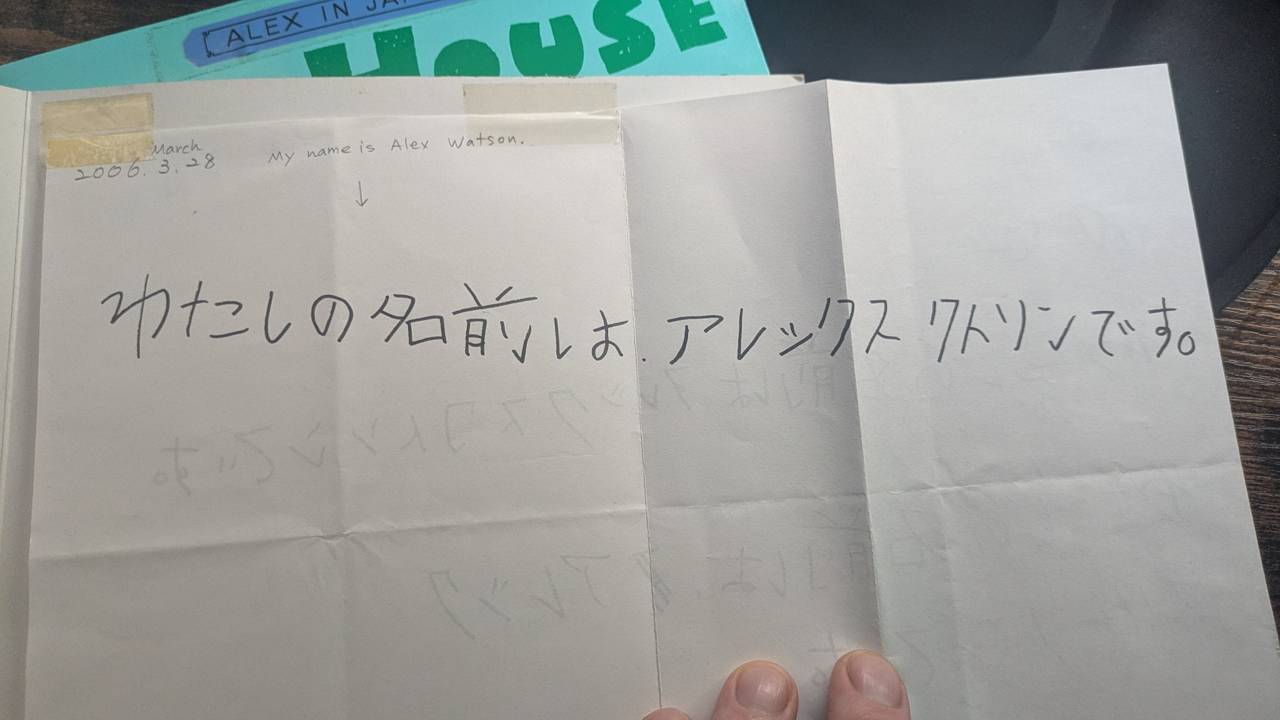 ALEX IN JA
HOUSE
March
2006.3.28
My name is Alex Watson.
↓
わたしの名前は.アレックス ワトソンです。